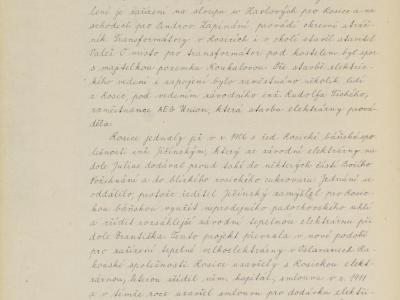 lení je zařízení na sloupu v Havlových pro Rosice a na
schodech pro Zastávku. Zapínání provádí okresní strážník.
Transformátory v Rosicích i v okolí stavil stavitel
Paleč. O místo pro transformátor pod kostelem byl spor
s majitelkou pozemku Koukalovou. Při stavbě elektric-
kého vedení a zapojení bylo zaměstnáno několik lidí
z Rosic, pod vedením závodního inž. Rudolfa Tichého,
zaměstnance AEG Union, která stavbu elektrárny prová-
děla.
Rosice jednaly již v r. 1906 s řed. Rosické báňské spo-
lečnosti inž. Jičínským, který ze závodní elektrárny na
dole Julius dodával proud také do některých částí Božího
Požehnání a do blízkého rosického cukrovaru. Jednání se
oddálilo, protože ředitel Jičínský zamýšlel pro Rosic-
kou báňskou využít neprodejního padochovského uhlí
a zřídit rozsáhlejší závodní tepelnou elektrárnu při
dole Františka. Tento projekt převzala v nové podobě
pro zařízení tepelné velkoelektrárny v Oslavanech Ra-
kouská společnost. Rosice uzavřely s Rosickou elekt-
rárnou, kterou zřídil, kapitál, smlouvu v r. 1911
a v témže roce uzavřel smlouvu pro dodávku elektř.